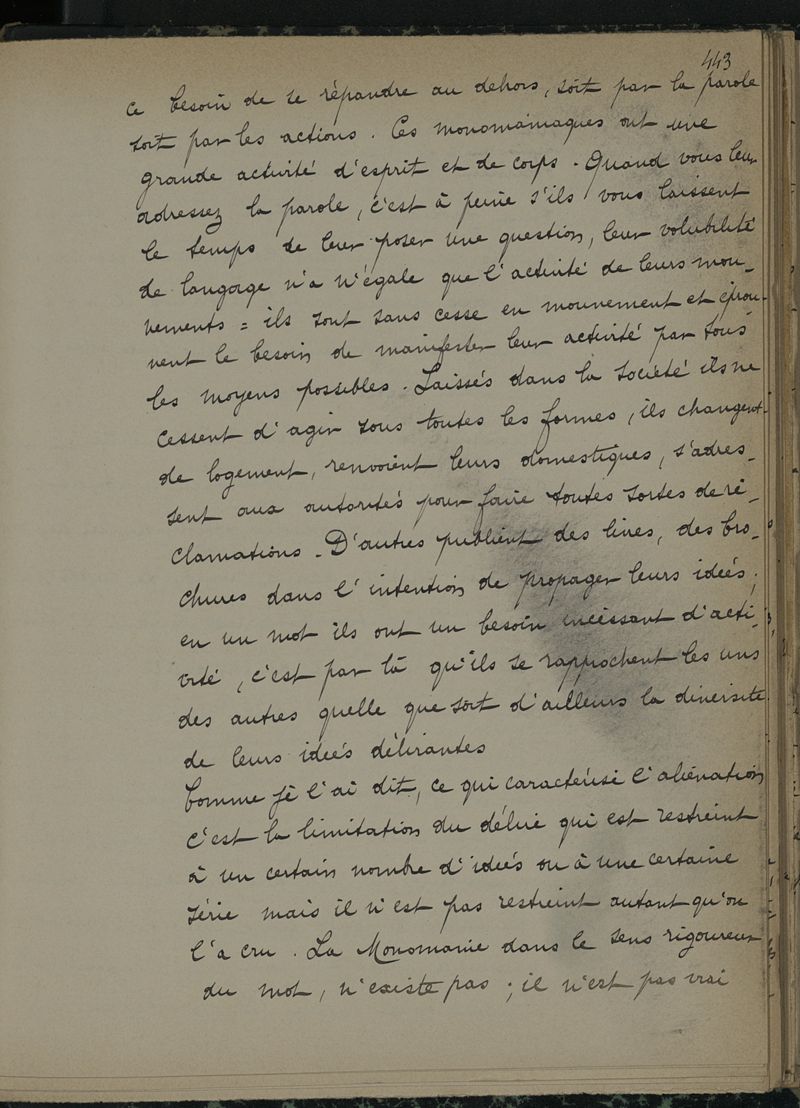 443
ce besoin de se répandre au dehors, soit par la parole
soit par les actions. Ces monomaniaques ont une
grande activité d'esprit et de corps. Quand vous leur
adressez la parole, c'est à peine s'ils vous laissent
le temps de leur poser une question, leur volubilité
de langage n'a n'égale que l'activité de leurs mou-
vements = ils sont sans cesse en mouvement et éprou-
vent le besoin de manifester leur activité par tous
les moyens possibles. Laissés dans la société ils ne
cessent d'agir sous toutes les formes, ils changent
de logement, renvoient leurs domestiques, s'adres-
sent aux autorités pour faire toutes sortes de ré-
clamations. D'autres publient des livres, des bro-
chures dans l'intention de propager leurs idées;
en un mot ils ont un besoin incessant d'acti-
vité, c'est par là qu'ils se rapprochent les uns
des autres quelle que soit d'ailleurs la diversité
de leurs idées délirantes
Comme je l'ai dit, ce qui caractérise l'aliénation
c'est la limitation du délire qui est restreint
à un certain nombre d'idées ou à une certaine
série mais il n'est pas restreint autant qu'on
l'a cru. La Monomanie dans le sens rigoureux
du mot, n'existe pas; il n'est pas vrai